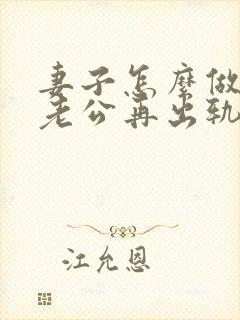 妻子怎麼做
老公再出轨
江允恩